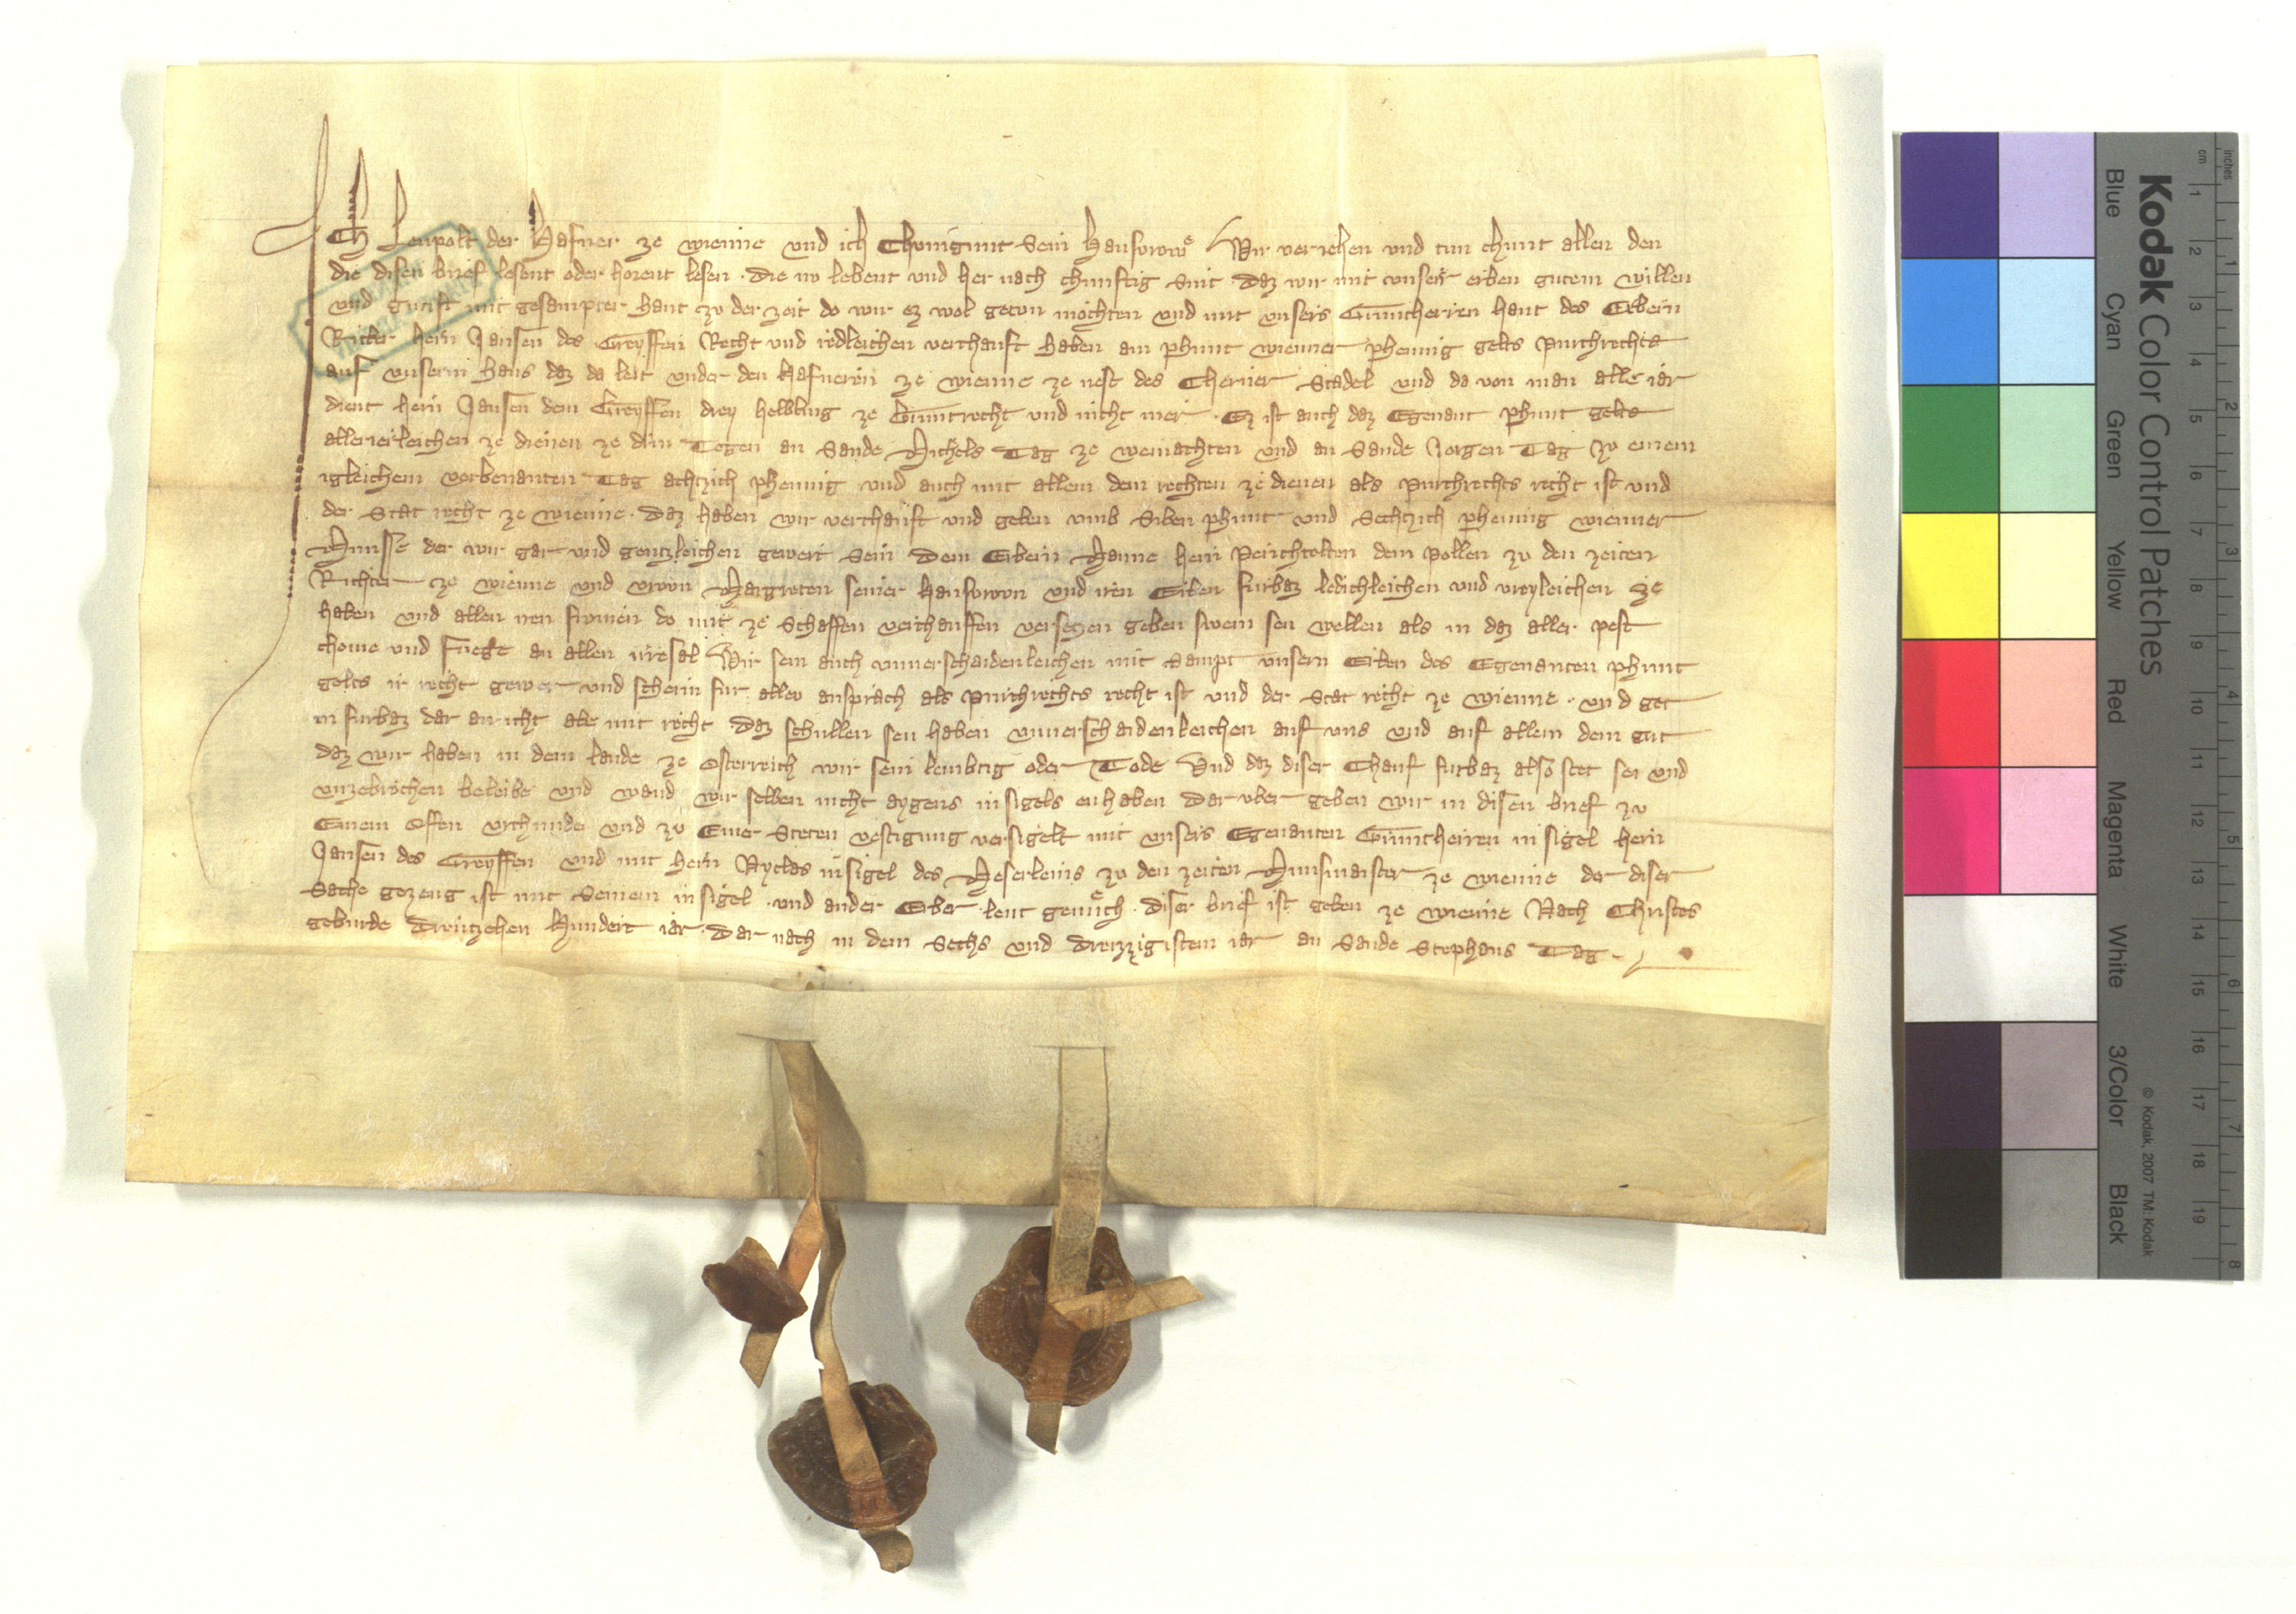 Ich Leupolt der Hafner ze wienne und ich Chunigunt sein Hausvrowe Wir veriehen und tun chunt allen den
die disen brief lesent oder horent lesen · die nv lebent und her nach chunftig sint · daz wir mit unser erben gutem willen
und gunst mit gesampter hant zv der zeit do wir ez wol getun mochten und mit unsers Gruntherren hant des Erbern
Ritter hern Jansen des Greyffen Recht und redleichen verchauft haben ain phunt wienner phennig gelts purchrechts
auf unserm haus daz da leit under den Hafnern ze wienne ze nest des Cherner Stadel und da von man alle iar
dient hern Jansen dem Greyffen drey helbling ze Gruntrecht und nicht mer · Ez ist auch daz Egenant phunt gelts
allerierleichen ze dienen ze drin Tegen an Sande Michels Tag ze weinachten und an Sande Jorgen Tag zv einem
igleichem vorbenanten Tag achtzich phennig und auch mit allem dem rechten ze dienen als purchrechts recht ist und
der Stat recht ze wienne · daz haben wir verchauft und geben umb Siben phunt und Sechtzich phennig wienner
Munsse der wir gar und gentzleichen gewert sein dem Erbern Manne hern Perichtolten dem Pollen zv den zeiten
Richter ze wienne und vrown Margreten seiner Hausvrown und iren Erben furbaz ledichleichen und vreyleichen ze
haben und allen iren frumen do mit ze schaffen verchauffen versetzen geben swem seu wellen als in daz aller pest
chome und fuege an allen irresal Wir sein auch unverschaidenleichen mit sampt unsern Erben des Egenanten phunt
gelts ir recht gewer und scherm fur allev ansprach als purchrechts recht ist und der Stat recht ze wienne · und get
in furbaz dar an icht abe mit recht daz schullen seu haben unverschaidenleichen auf uns und auf allem dem gut
daz wir haben in dem lande ze Osterreich wir sein lembtig oder Tode Und daz diser Chauf furbaz also stet sei und
unzebrochen beleibe und wand wir selben nicht aygens insigels enhaben Dar uber geben wir in disen brief zv
Einem offen urchunde und zv Einer Steten vestigung versigelt mit unsers Egenanten Gruntherren insigel hern
Jansen des Greyffen und mit hern Nyclas insigel des Meserleins zv den zeiten Munsmaister ze wienne der diser
Sache gezeug ist mit Seinem insigel · und ander Erber leut genuch · diser brief ist geben ze wienne Nach Christes
geburde Dreutzehen Hundert iar · Dar nach in dem Sechs und Dreizzigistem iar an Sande Stephans Tag ·
Kodak Color Control Patches
© Kodak, 2007 TM: Kodak
Blue Cyan Green Yellow Red Magenta White 3/Color Black
cm 1 2 3 4 5 6 7 8 9 10 11 12 13 14 15 16 17 18 19
inches 1 2 3 4 5 6 7 8